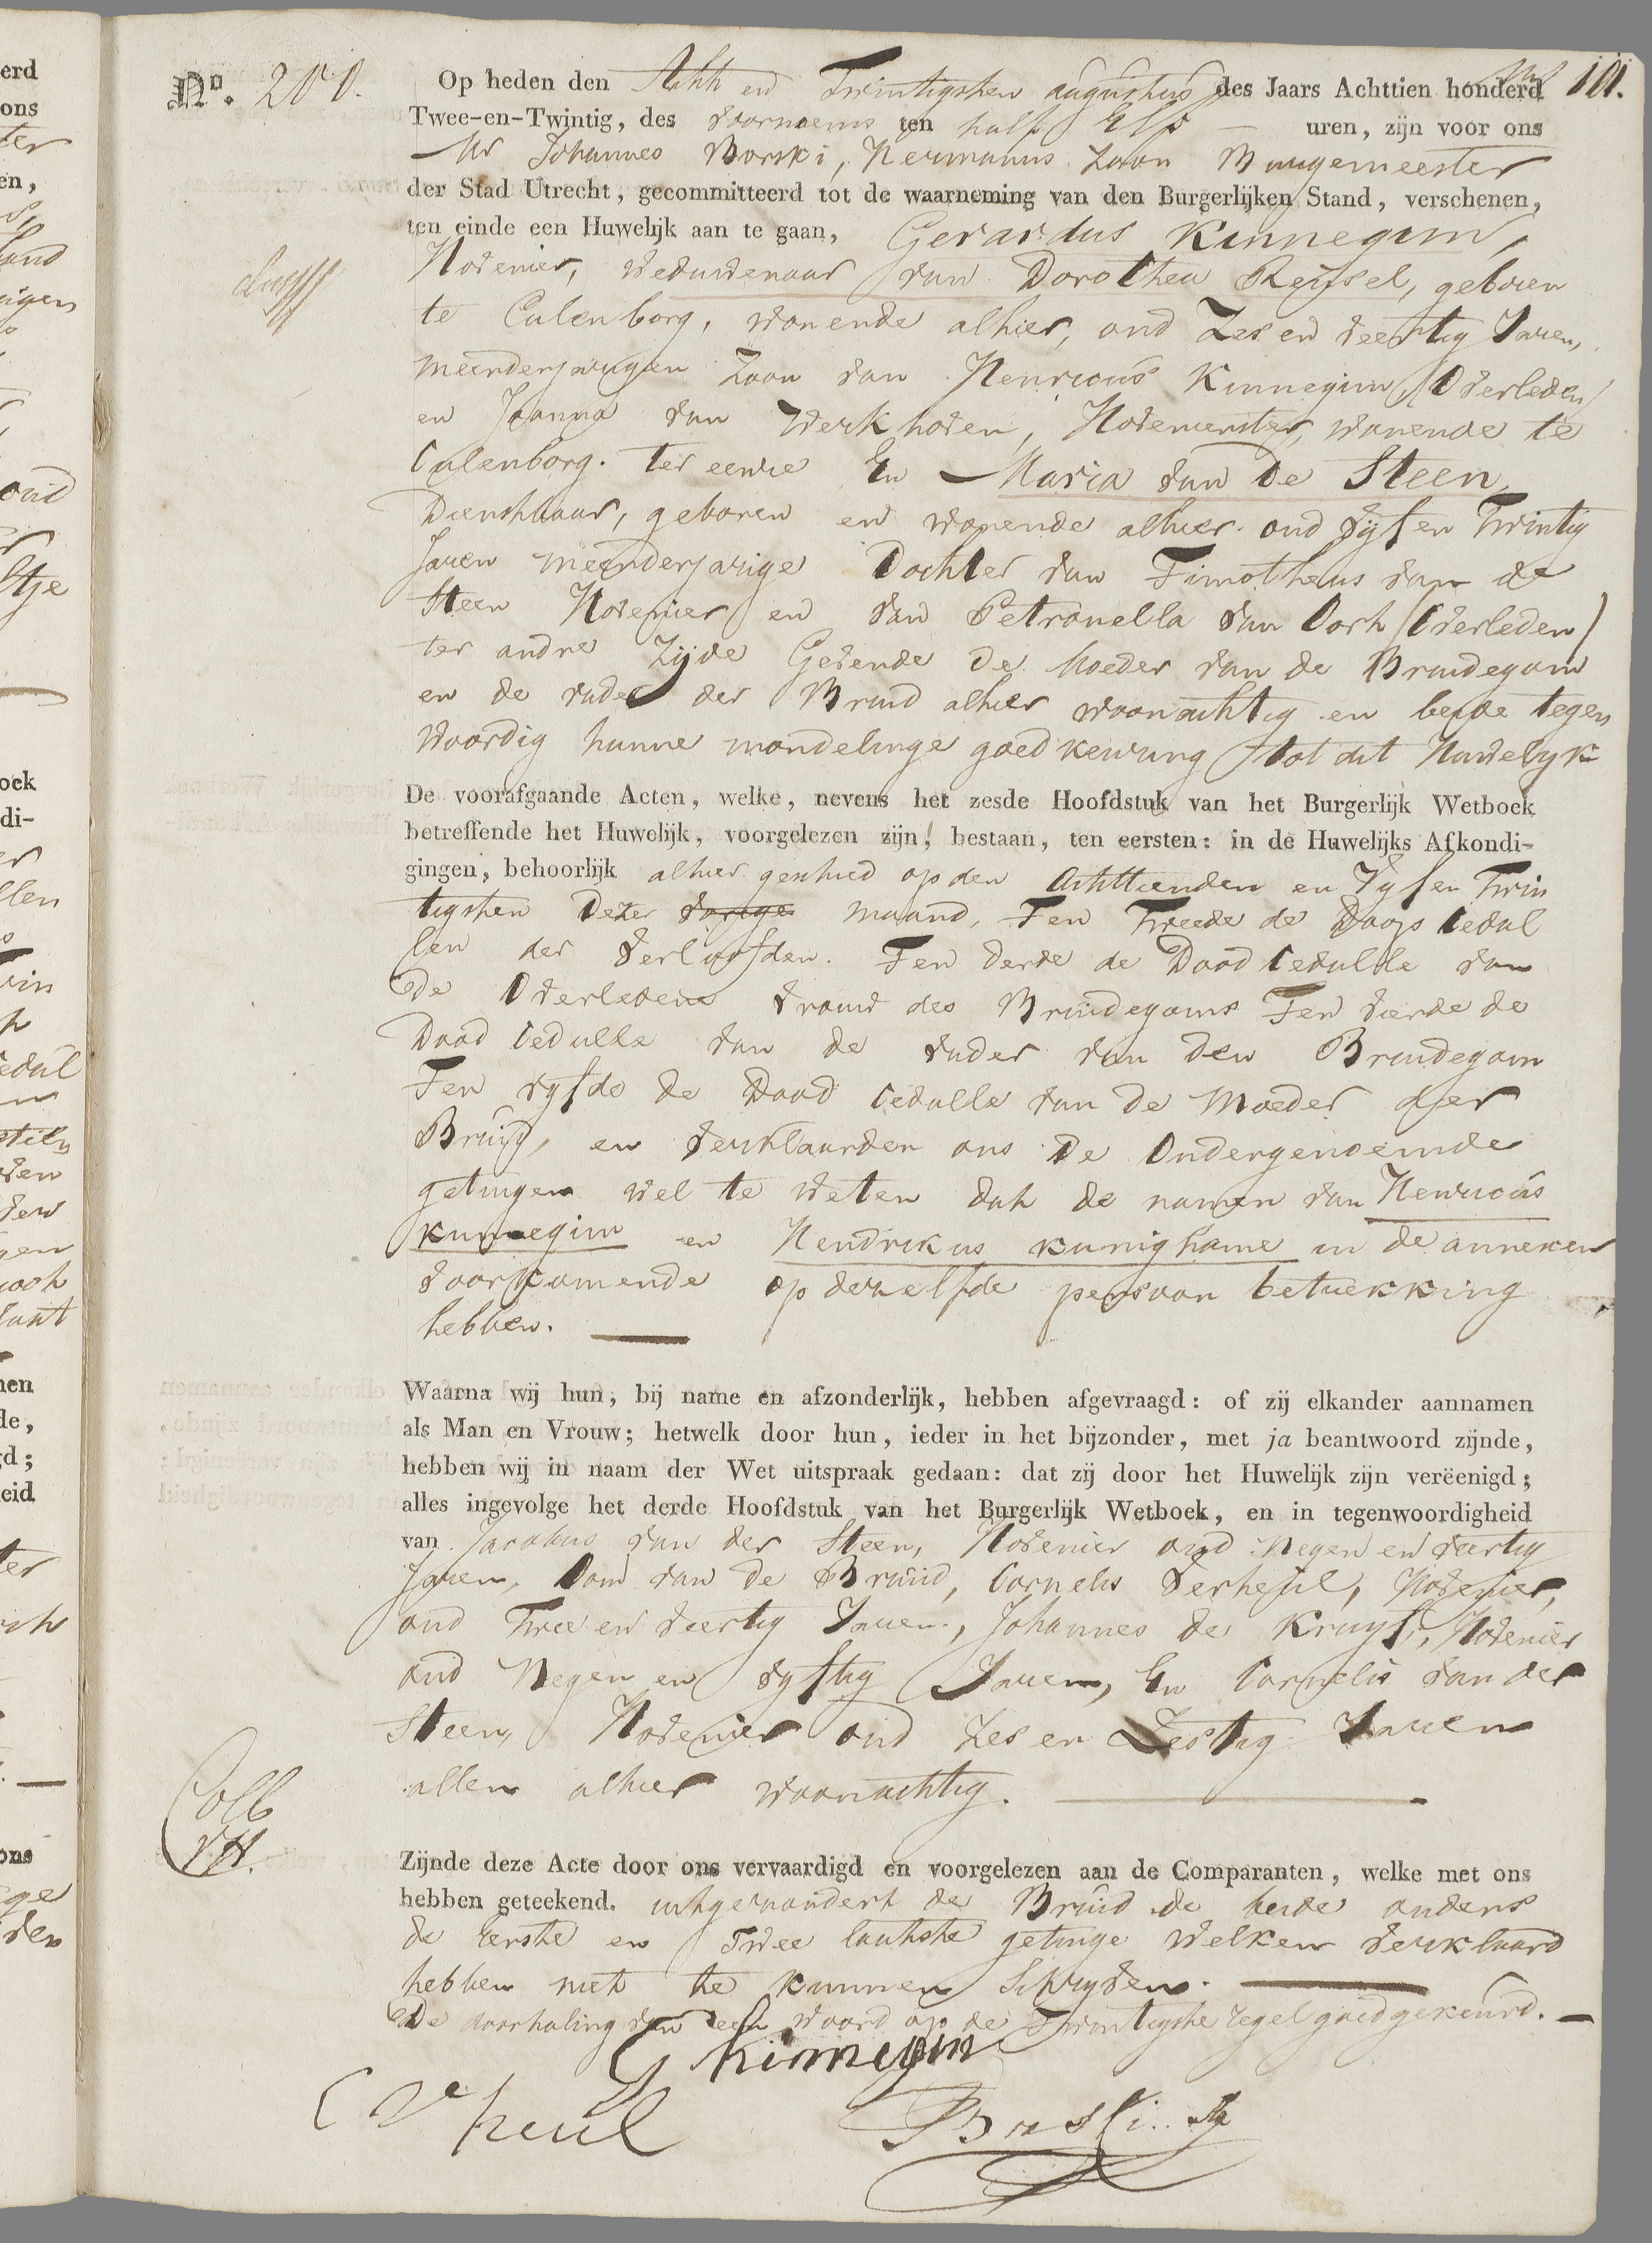 No. 200. Op heden den Acht en Twintigsten augustus des Jaars Achttien honderd 101.
Twee-en-Twintig, des voornoens ten half Elf uren, zijn voor ons
Mr Johannes Borski, Hermanus Zoon Burgemeester
der Stad Utrecht, gecommitteerd tot de waarneming van den Burgerlijken Stand, verschenen,
ten einde een Huwelijk aan te gaan, Gerardus Kinnegim,
Hovenier, Weduwenaar van Dorothea Reijsel, geboren
te Culenborg, wonende alhier, oud Zes en veertig Jaren,
meerderjarigen Zoon van Henricus Kinnegim (Overleden)
en Joanna van Werkhoven, Hovenierster, wonende te
Culenborg. ter eenre En Maria van de Steen,
Dienstbaar, geboren en wonende alhier oud Vyf en Twintig
Jaren meerderjarige Dochter van Timotheus van de
Steen Hovenier en van Petronella van Oort (Overleden)
ter andre Zijde Gevende de Moeder van de Bruidegom
en de vader der Bruid alhier woonachtig en beide tegen
woordig hunne mondelinge goedkeuring tot dit Huwelyk
De voorafgaande Acten, welke, nevens het zesde Hoofdstuk van het Burgerlijk Wetboek
betreffende het Huwelijk, voorgelezen zijn, bestaan, ten eersten: in de Huwelijks Afkondi-
gingen, behoorlijk alhier geschied op den Achttienden en Vyf en Twin
tigsten Dezer vorige maand, Ten Tweede de Doops Cedul
len der Verloofden. Ten derde de Dood Cedulle van
de Overledene Vrouw des Bruidegoms Ten vierde de
Dood Cedulle van de vader van den Bruidegom
Ten vyfde de Dood Cedulle van de Moeder der
Bruid, en Verklaarden ons De Ondergenoemde
getuigen wel te weten dat de namen van Henricus
Kunnegim en Hendrikus Kunighame in de annexen
voorkomende op dezelfde persoon betrekking
hebben.
Waarna wij hun, bij name en afzonderlijk, hebben afgevraagd: of zij elkander aannamen
als Man en Vrouw; hetwelk door hun, ieder in het bijzonder, met ja beantwoord zijnde,
hebben wij in naam der Wet uitspraak gedaan: dat zij door het Huwelijk zijn verëenigd;
alles ingevolge het derde Hoofdstuk van het Burgerlijk Wetboek, en in tegenwoordigheid
van Jacobus van der Steen, Hovenier oud Negen en veertig
Jaren, Oom van de Bruid, Cornelis Verheul, Hovenier,
oud Twee en veertig Jaren, Johannes de Kruyf, Hovenier
oud Negen en vyftig Jaren, En Cornelis van der
Steen, Hovenier oud Zes en Zestig Jaren
allen alhier woonachtig.
Coll
VH.
Zijnde deze Acte door ons vervaardigd en voorgelezen aan de Comparanten, welke met ons
hebben geteekend. uitgezondert de Bruid de beide ouders
de Eerste en Twee laatste getuige welken verklaard
hebben niet te kunnen Schryven.
De doorhaling van een woord op de Twintigste regel goedgekeurd.
G Kinnegim
C Vheul Borski